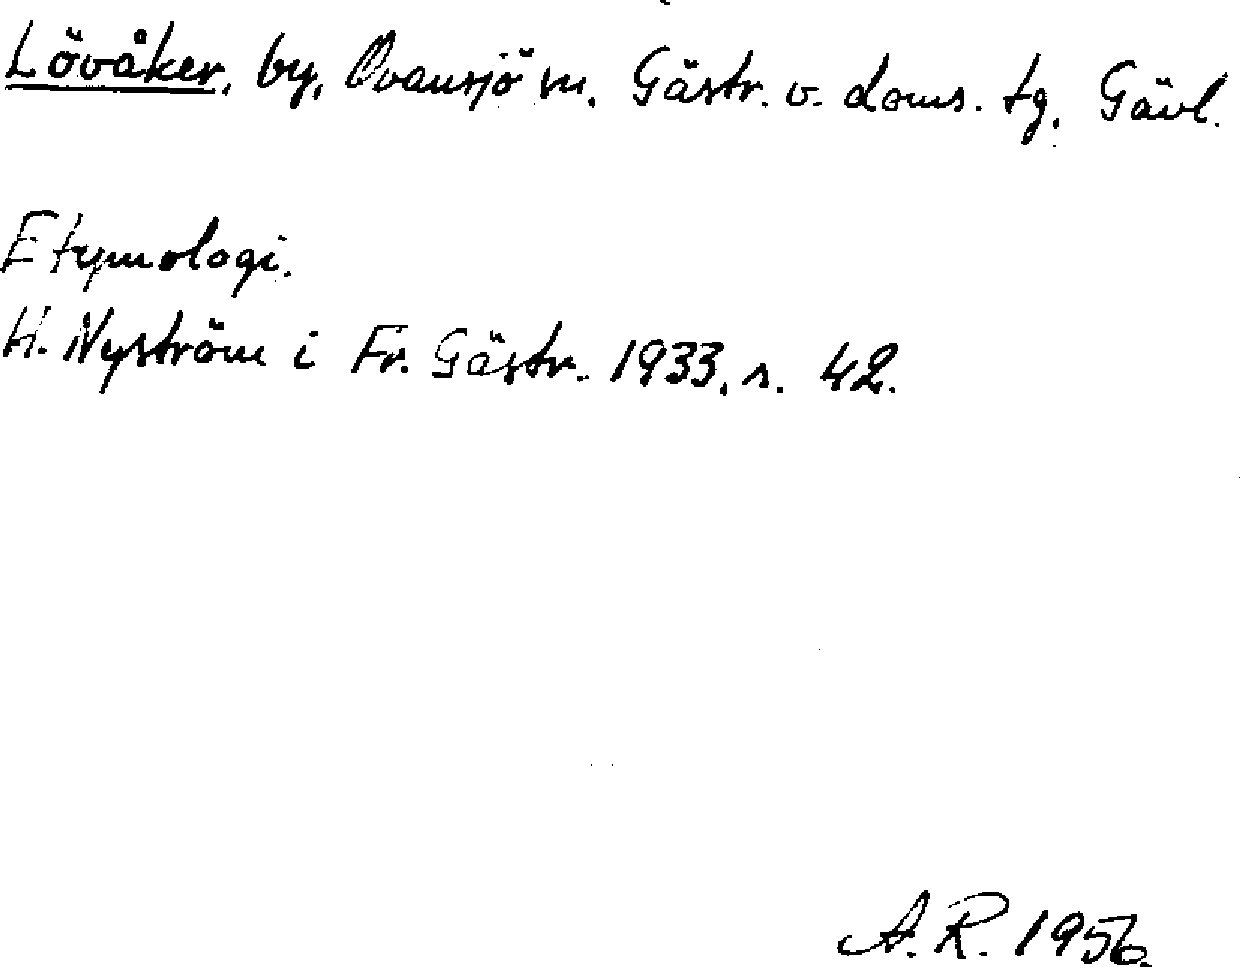 Lövåker, by, Ovansjö sn. Gästr. v. doms. tg. Gävl.
Etymologi.
H. Nyström i Fr. Gästr. 1933, s. 42.
A.R. 1956.